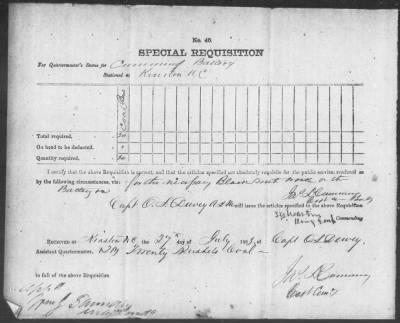 No. 40.
SPECIAL REQUISITION
For Quartermaster's Stores for Cumming Battery
Stationed at Kinston N.C
Total required,
On hand to be deducted,
Quantity required,
I certify that the above Requisition is correct, and that the articles specified are absolutely requisite for the public service, rendered so
by the following circumstances, viz: for the necessary Black Smith work in the
Battery
Jas. D. Cumming
Capt O. S. Dewey AQM will issue the articles specified in the above Requisition
Commanding
RECEIVED at Kinston N.C. the 27th of July 1863, of Capt O.S. Dewey,
Assistant Quartermaster, Twenty Bushels Coal
in full of the above Requisition
Jas. D. Cumming